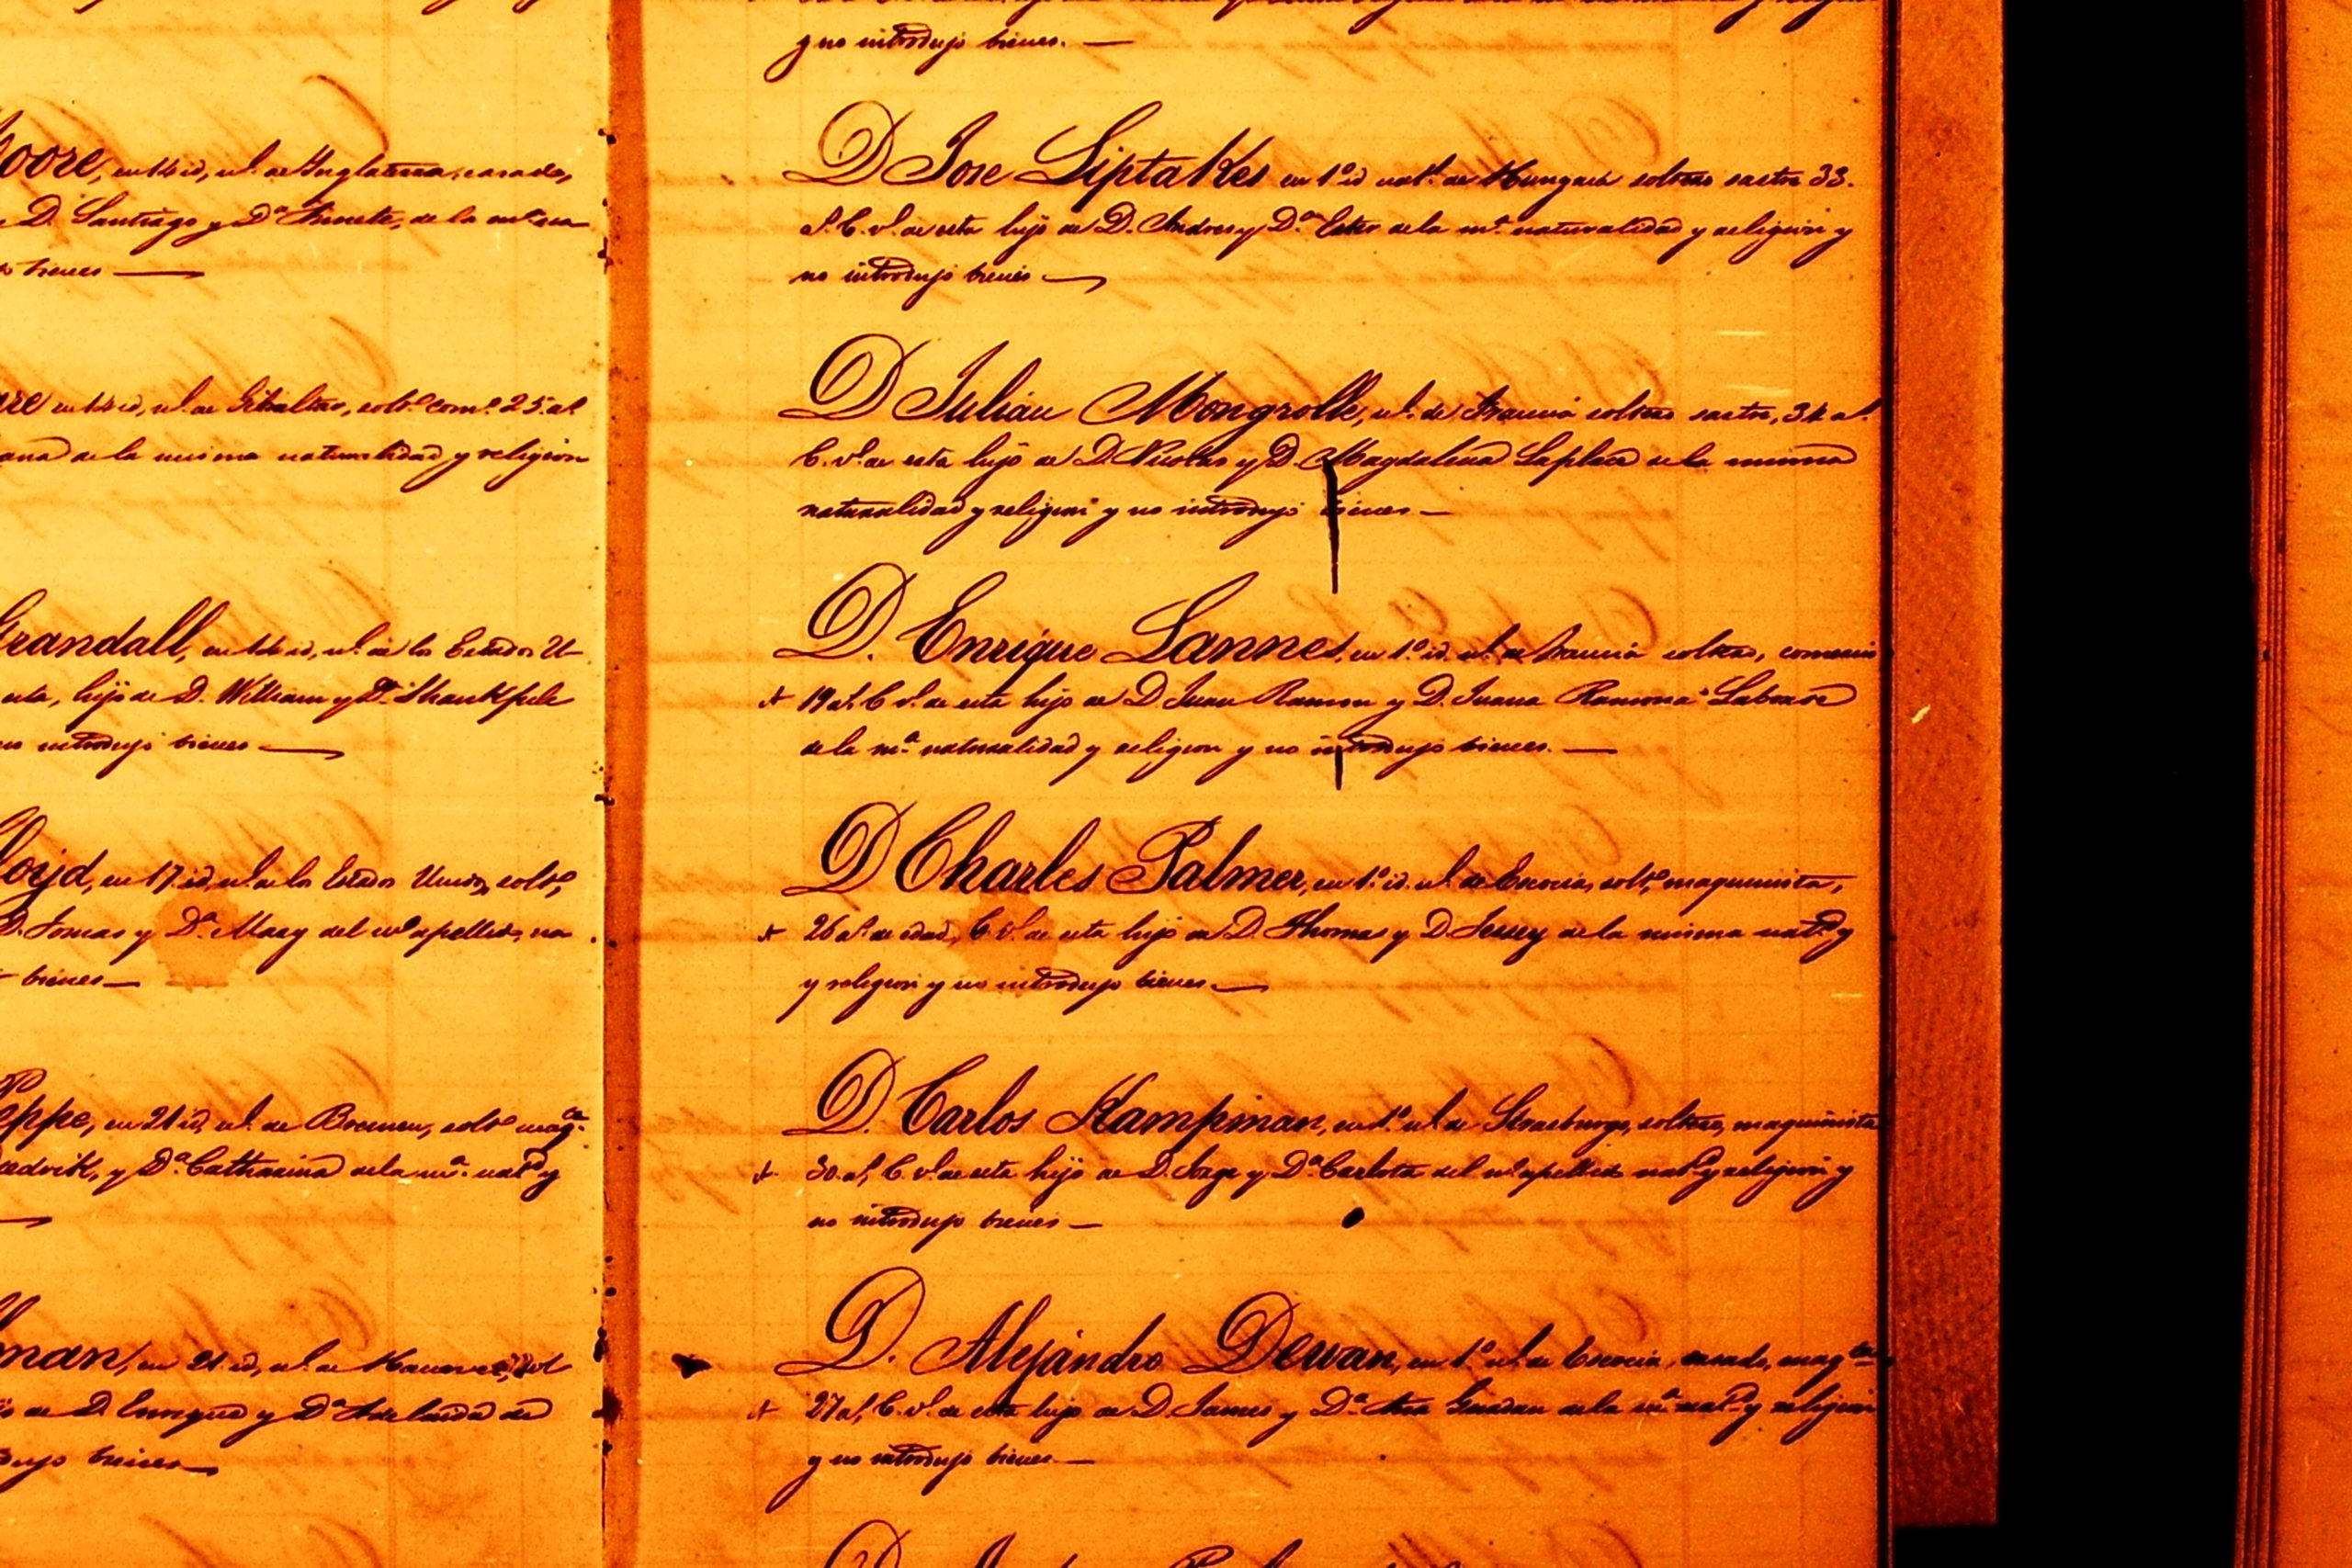 oore, en 14 id, nl. de Inglaterra, casado,
D. Santiago y Dª de la mª na
bienes
en 14 id, nl. de Gibraltar, solt.º com.º 25. aº
de la misma naturalidad y religion
Grandall, en 14 id, nl. de los Estados U-
esta, hijo de D. William y Dª Thankfule
no introdujo bienes
loyd, en 17. id, nl. de los Estados Unidos, solt.º,
D. Tomas y Dª Mary del mº apellido, na
bienes
eppe, en 21 id, nl. de Bremen, solt.º maqª
edrik, y Dª Catharina de la mª. natd y
man, en 21. id, nl. de Hanover, sol
de D. Enrique y Dª Adelaida de
dujo bienes
y no introdujo bienes.
D Jose Liptakes en 1º id natl. de Hungria soltero sastre 33.
a. C. vº. de esta hijo de D. Andres y Dª Ester de la mª. naturalidad y religion y
no introdujo bienes
D Julian Mongrolle, nl. de Francia soltero sastre, 34 aº.
C. vº. de esta hijo de D. Nicolas y D. Magdalena Laplace de la misma
naturalidad y religion y no introdujo bienes
D. Enrique Lannes, en 1º. id. nl. de Francia soltero, comercio
19 aº. C vº. de esta hijo de D Juan Ramon y D. Juana Ramona Laborde
de la mª naturalidad y religion y no introdujo bienes.
D Charles Palmer, en 1º. id. nl. de Escocia, solt.º maquinista,
26 aº. de edad, C vº. de esta hijo de D. Thomas y D. Jessey de la misma natd y
y religion y no introdujo bienes.
D. Carlos Kampman, en 1º. nl. de Strasburgo, soltero, maquinista
30. aº, C. vº. de esta hijo de D. Jorge y Dª Carlota del mº apellido natd y religion y
no introdujo bienes
D. Alejandro Dewan, en 1º. nl. de Escocia, casado, maqta
27 aº, C. vº. de esta hijo de D. James y Dª Ana de la mª natd y religion
y no introdujo bienes